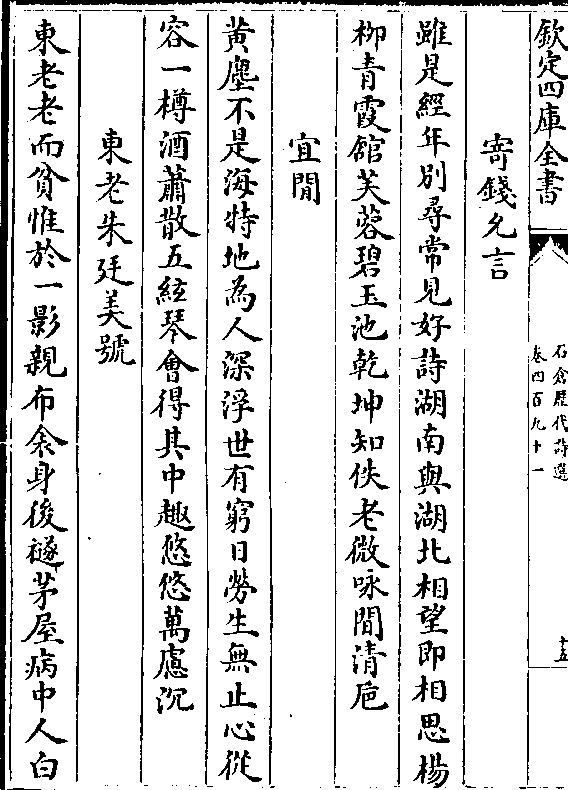 欽定四庫全書
石倉歷代詩選
卷四百九十一
十五
寄錢允言
雖是經年別尋常見好詩湖南與湖北相望即相思楊
柳青霞館芙蓉碧玉池乾坤知佚老微咏間清巵
宜閒
黄塵不是海特地為人深浮世有窮日勞生無止心從
容一樽酒蕭散五絃琴會得其中趣悠悠萬慮沉
東老朱廷美號
東老老而貧惟於一影親布衾身後襚茅屋病中人白